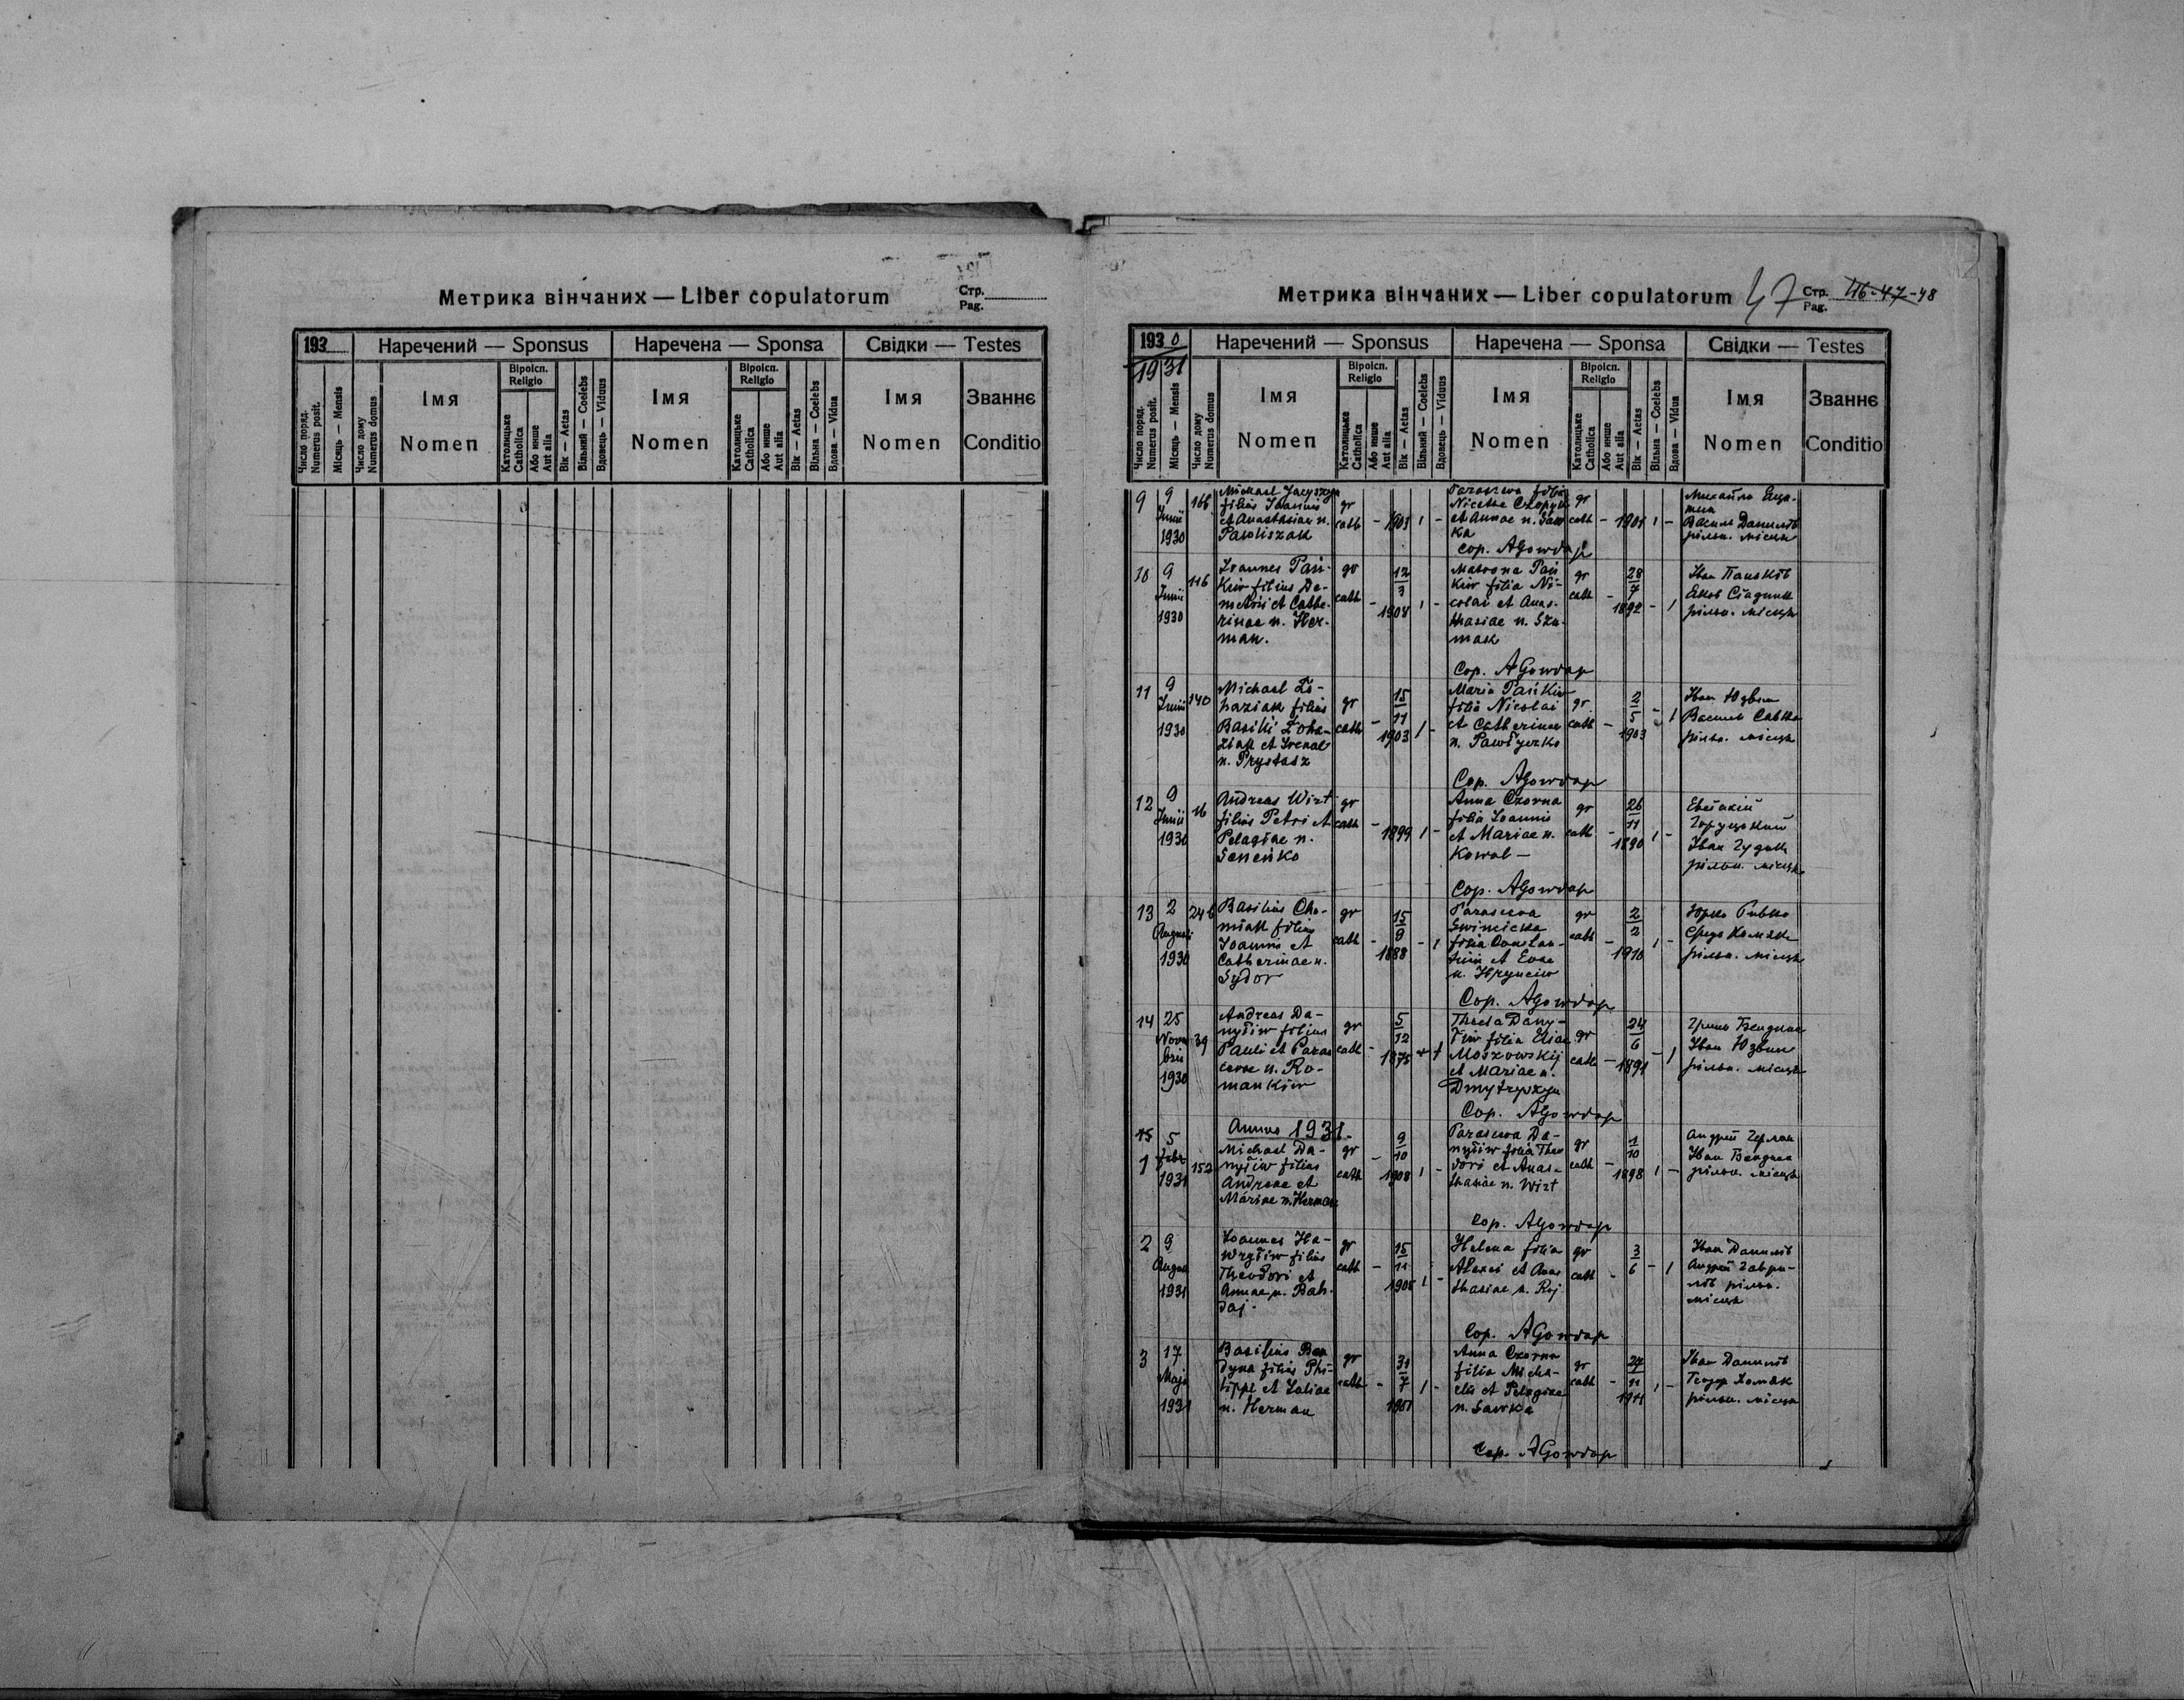 Метрика вінчаних — Liber copulatorum
Стр.
Pag.
193
Наречений — Sponsus
Наречена — Sponsa
Свідки — Testes
Число поряд.
Numerus posit.
Місяць — Mensis
Число дому
Numerus domus
Імя
Nomen
Віроісп.
Religio
Католицьке
Catholica
Або инше
Aut alia
Вік — Aetas
Вільний — Coelebs
Вдовець — Viduus
Імя
Nomen
Віроісп.
Religio
Католицьке
Catholica
Або инше
Aut alia
Вік — Aetas
Вільна — Coelebs
Вдова — Vidua
Імя
Nomen
Званнє
Conditio
Метрика вінчаних — Liber copulatorum
47
Стр.
Pag.
46-47-48
1930
1931
Наречений — Sponsus
Наречена — Sponsa
Свідки — Testes
Число поряд.
Numerus posit.
Місяць — Mensis
Число дому
Numerus domus
Імя
Nomen
Віроісп.
Religio
Католицьке
Catholica
Або инше
Aut alia
Вік — Aetas
Вільний — Coelebs
Вдовець — Viduus
Імя
Nomen
Віроісп.
Religio
Католицьке
Catholica
Або инше
Aut alia
Вік — Aetas
Вільна — Coelebs
Вдова — Vidua
Імя
Nomen
Званнє
Conditio
9
9
Junii
1930
166
Michael
filius Joannis
et Anastasiae n.
Pawliszak
gr
cath - 1903 1 -
Parascewa filia
Nicetae
et Annae n. Saw
ka
gr
cath - 1901 1 -
Михайло
Василь Данилів
рільн. місцеві
Cop. AGowdap
10
9
Junii
1930
116
Joannes Pań-
kiw filius De-
metrii et Cathe-
rinae n. Her-
man.
gr
cath - 12/3 1908 1 -
Matrona Pań
kiw filia Ni-
colai et Anas-
thasiae n. Szu-
mak
gr
cath - 28/7 1892 - 1
Іван Паньків
Яков
рільн. місцеві
Cop. AGowdap
11
9
Junii
1930
140
Michael Ło-
haziak filius
Basilii Łoha-
ziak et Irenae
n. Prystasz
gr
cath - 15/11 1903 1 -
Maria Pańkiw
filia Nicolai
et Catherinae
n. Pawłyczko
gr
cath - 2/5 1903 - 1
Іван Юзвин
Василь Савка
рільн. місцеві
Cop. AGowdap
12
9
Junii
1930
16
Andreas Wirt
filius Petri et
Pelagiae n.
Seneńko
gr
cath - 1899 1 -
Anna Czorna
filia Joannis
et Mariae n.
Kowal —
gr
cath - 26/11 1890 1 -
Іван
рільн. місцеві
Cop. AGowdap
13
2
Augusti
1930
246
Basilius Cho-
miak filius
Joannis et
Catherinae n.
Sydor
gr
cath - 15/9 1888 - 1
Parascewa
Swinicka
filia Constan-
tini et Evae
n. Hrynciw
gr
cath - 2/2 1910 1 -
Юрко Рибко
рільн. місцеві
Cop. AGowdap
14
25
Novem
bris
1930
39
Andreas Da-
nyliw filius
Pauli et Paras
cevae n. Ro-
mankiw
gr
cath - 5/12 1875 - 1
Thecla Dany-
liw filia Eliae
Moszowskij
et Mariae n.
Dmytryszyn
gr
cath - 24/6 1891 - 1
Гринь Бендина
Іван Юзвин
рільн. місцеві
Cop. AGowdap
Annus 1931.
15
1
5
Febr
1931
152
Michael Da-
nyliw filius
Andreae et
Mariae n. Herman
gr
cath - 9/10 1908 1 -
Parascewa Da-
nyliw filia Theo
dori et Anas-
thasiae n. Wirt
gr
cath - 1/10 1898 1 -
Андрей Герман
Іван Бендина
рільн. місцеві
Cop. AGowdap
2
9
August
1931
Joannes Ha-
wryliw filius
Theodori et
Annae n. Bah-
daj.
gr
cath - 15/11 1905 1 -
Helena filia
Alexii et Anas
thasiae n. Roj
gr
cath - 3/6 - 1
Іван Данилів
Андрей Гаври-
лів рільн.
місцеві
Cop. AGowdap
3
17
Maji
1931
Basilius Ben
dyna filius Phi-
lippi et Juliae
n. Herman
gr
cath - 31/7 1901 1 -
Anna Czorna
filia Micha-
elis et Pelagiae
n. Sawka
gr
cath - 27/11 1911 1 -
Іван Данилів
Теодор Хомяк
рільн. місцеві
Cop. AGowdap